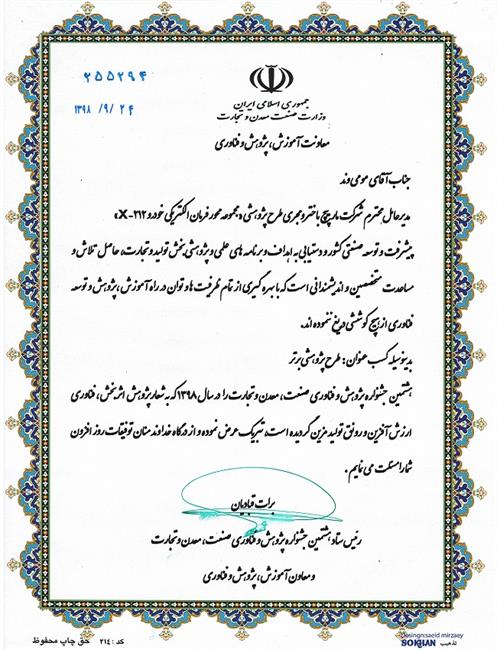 ۲۵۵۲۹۴
۱۳۹۸/۹/۲۴
جمهوری اسلامی ایران
وزارت صنعت معدن و تجارت
معاونت آموزش، پژوهش و فناوری
جناب آقای مومی وند
مدیرعامل محترم شرکت مارپیچ باختر و مجری طرح پژوهشی «مجموعه محور فرمان الکتریکی خودرو X-۲۱۲»
پیشرفت و توسعه صنعتی کشور و دستیابی به اهداف و برنامه های علمی و پژوهشی بخش تولید و تجارت، حاصل تلاش و
مساعدت متخصصین و اندیشمندانی است که با بهره گیری از تمام ظرفیت ها و توان در راه آموزش، پژوهش و توسعه
فناوری از هیچ کوششی دریغ ننموده اند.
بدینوسیله کسب عنوان: طرح پژوهشی برتر
هشتمین جشنواره پژوهش و فناوری صنعت، معدن و تجارت را در سال ۱۳۹۸ که به شعار پژوهش اثربخش، فناوری
ارزش آفرین و رونق تولید مزین گردیده است، تبریک عرض نموده و از درگاه خداوند منان توفیقات روز افزون
شما را مسئلت می نمایم.
برات قبادیان
رئیس ستاد هشتمین جشنواره پژوهش و فناوری صنعت، معدن و تجارت
و معاون آموزش، پژوهش و فناوری
کد: ۲۱۴ حق چاپ محفوظ
Design:saeid mirzaey
SOKHAN تذهیب